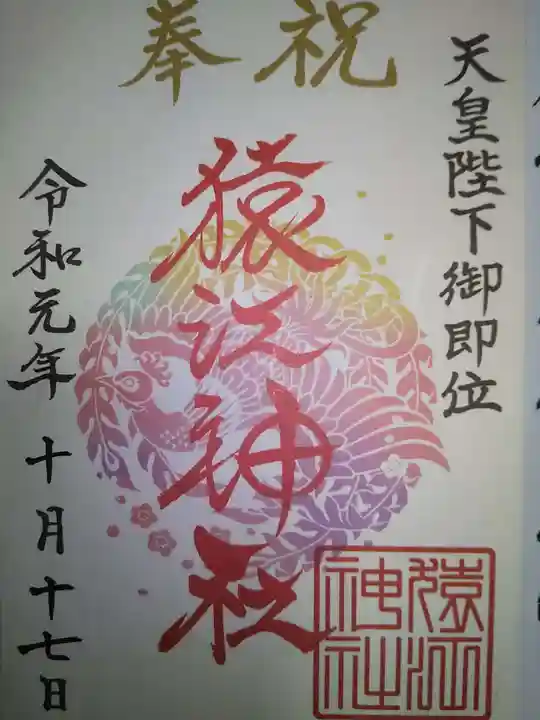 奉祝
天皇陛下御即位
猿江神社
令和元年 十月十七日
猿江
神社